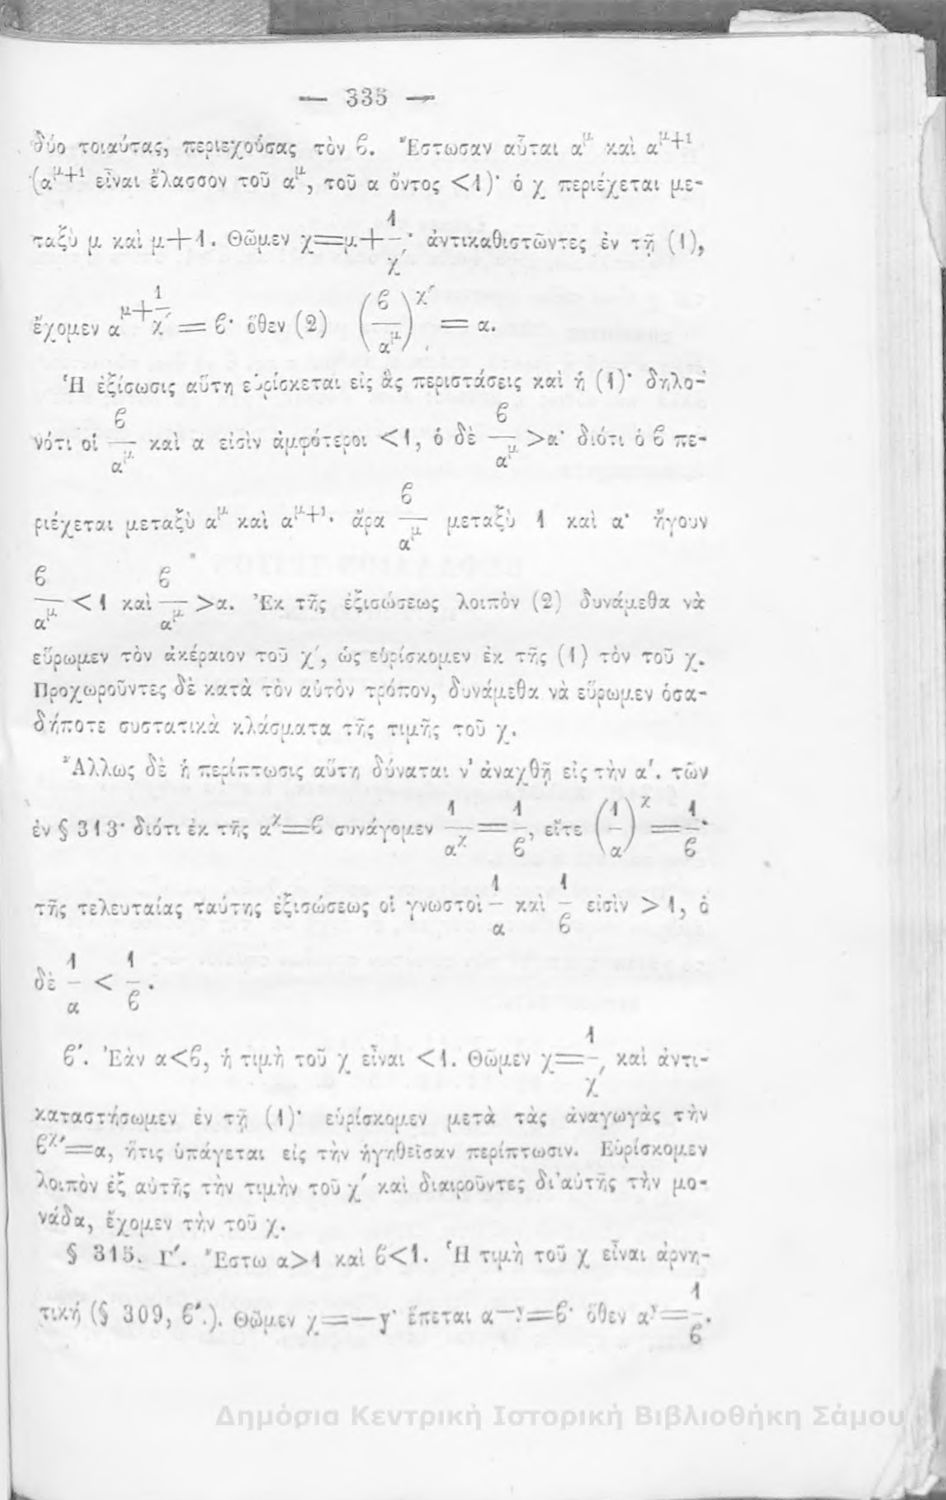 — 335 —
δύο τοιαύτας, περιεχούσας τὸν ϐ. Ἔστωσαν αὗται α^μ καὶ α^{μ+1}
(α^{μ+1} εἶναι ἔλασσον τοῦ α^μ, τοῦ α ὄντος <1)· ὁ χ περιέχεται με-
ταξὺ μ καὶ μ+1. Θῶμεν χ=μ+1/χ′· ἀντικαθιστῶντες ἐν τῇ (1),
ἔχομεν α^{μ+1/χ′} = ϐ· ὅθεν (2) (ϐ/α^μ)^{χ′} = α.
Ἡ ἐξίσωσις αὕτη εὑρίσκεται εἰς ἃς περιστάσεις καὶ ἡ (1)· δηλο-
νότι οἱ ϐ/α^μ καὶ α εἰσὶν ἀμφότεροι <1, ὁ δὲ ϐ/α^μ >α· διότι ὁ ϐ πε-
ριέχεται μεταξὺ α^μ καὶ α^{μ+1}· ἄρα ϐ/α^μ μεταξὺ 1 καὶ α· ἤγουν
ϐ/α^μ <1 καὶ ϐ/α^μ >α. Ἐκ τῆς ἐξισώσεως λοιπὸν (2) δυνάμεθα νὰ
εὕρωμεν τὸν ἀκέραιον τοῦ χ′, ὡς εὑρίσκομεν ἐκ τῆς (1) τὸν τοῦ χ.
Προχωροῦντες δὲ κατὰ τὸν αὐτὸν τρόπον, δυνάμεθα νὰ εὕρωμεν ὁσα-
δήποτε συστατικὰ κλάσματα τῆς τιμῆς τοῦ χ.
Ἄλλως δὲ ἡ περίπτωσις αὕτη δύναται ν' ἀναχθῇ εἰς τὴν α′. τῶν
ἐν § 313· διότι ἐκ τῆς α^χ=ϐ συνάγομεν 1/α^χ = 1/ϐ, εἴτε (1/α)^χ = 1/ϐ·
τῆς τελευταίας ταύτης ἐξισώσεως οἱ γνωστοὶ 1/α καὶ 1/ϐ εἰσὶν >1, ὁ
δὲ 1/α < 1/ϐ.
ϐ′. Ἐὰν α<ϐ, ἡ τιμὴ τοῦ χ εἶναι <1. Θῶμεν χ=1/χ′, καὶ ἀντι-
καταστήσωμεν ἐν τῇ (1)· εὑρίσκομεν μετὰ τὰς ἀναγωγὰς τὴν
ϐ^{χ′}=α, ἥτις ὑπάγεται εἰς τὴν ἡγηθεῖσαν περίπτωσιν. Εὑρίσκομεν
λοιπὸν ἐξ αὐτῆς τὴν τιμὴν τοῦ χ′ καὶ διαιροῦντες δι' αὐτῆς τὴν μο-
νάδα, ἔχομεν τὴν τοῦ χ.
§ 315. Γ′. Ἔστω α>1 καὶ ϐ<1. Ἡ τιμὴ τοῦ χ εἶναι ἀρνη-
τική (§ 309, ϐ′.). Θῶμεν χ=—y· ἕπεται α^{—y}=ϐ· ὅθεν α^y=1/ϐ.
Δημόσια Κεντρική Ιστορική Βιβλιοθήκη Σάμου